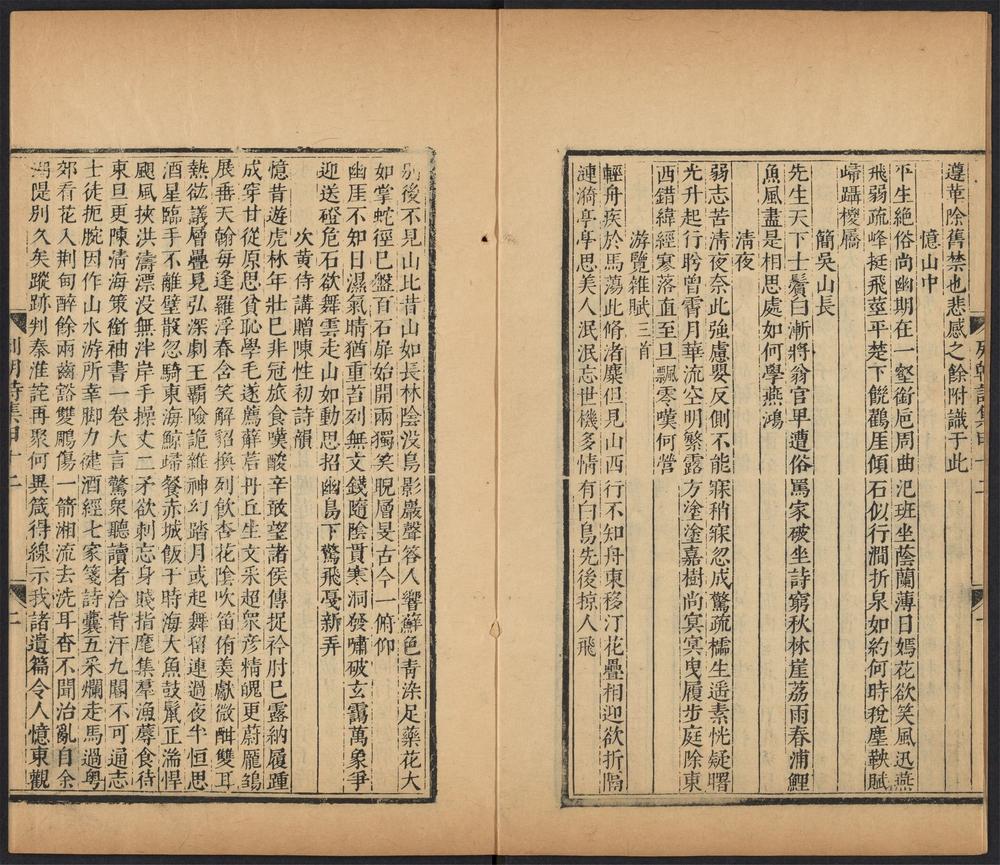 遵革除舊禁也悲感之餘附識于此
憶山中
平生絕俗尚幽期在一壑銜巵周曲汜班坐蔭蘭薄日嫣花欲笑風迅燕
飛弱疏峰挺飛莖平楚下饑鸛厓傾石似行澗折泉如約何時稅塵鞅賦
歸躡椶屩
簡吳山長
先生天下士鬢白漸將翁官早遭俗罵家破坐詩窮秋林崖荔雨春浦鯉
魚風盡是相思處如何學燕鴻
清夜
弱志苦清夜奈此強慮嬰反側不能寐稍寐忽成驚疏櫺生遥素恍疑曙
光升起行盻曾霄月華流空明繁露方塗塗嘉樹尚冥冥曳履步庭除東
西錯緯經寒落直至旦飄零嘆何營
游覽雜賦三首
輕舟疾於馬蕩此脩渚麋但見山西行不知舟東移汀花疊相迎欲折隔
漣漪亭亭思美人泯泯忘世機多情有白鳥先後掠人飛
列朝詩集甲十二
一
別後不見山比昔山如長林陰没鳥影巖聲答人響蘚色青染足藥花大
如掌蛇徑巳盤百石扉始開兩獨笑睨層旻古今一俯仰
幽厓不知日濕氣晴猶重苔列無文錢隨陰貫寒洞發嘯破玄靄萬象爭
迎送磴危石欲舞雲走山如動思招幽鳥下驚飛戞新弄
次黃侍講贈陳性初詩韻
憶昔遊虎林年壯巳非冠旅食嘆酸辛敢望諸侯傳捉衿肘巳露納履踵
成穿甘從原思貧恥學毛遂薦蘚莙丹丘生文采超衆彦精醜更蔚龎鵠
展垂天翰每逢羅浮春含笑解貂換列飲杏花陰吹笛侑羙獻微酣雙耳
熱竑議層疊見弘深劇王覇險詭雜神幻踏月或起舞留連過夜半恒思
酒星臨手不離壁散忽騎東海鯨歸餐赤城飯于時海大魚鼓鬣正湍悍
颶風挾洪濤漂没無泮岸手操丈二矛欲刺忘身賤指麾集羣漁蓐食待
東旦更陳淸海策銜袖書一卷大言驚衆聽讀者洽背汗九閽不可通志
士徒扼腕因作山水游所幸脚力健酒經七家箋詩囊五采爛走馬過粤
郊看花入荆甸醉餘兩齒豁雙鵰傷一箭湘流去洗耳杳不聞治亂自余
湖隄別久矣蹤跡判秦淮詫再聚何異箴得線示我諸遺篇令人憶東觀
列朝詩集甲十二
二